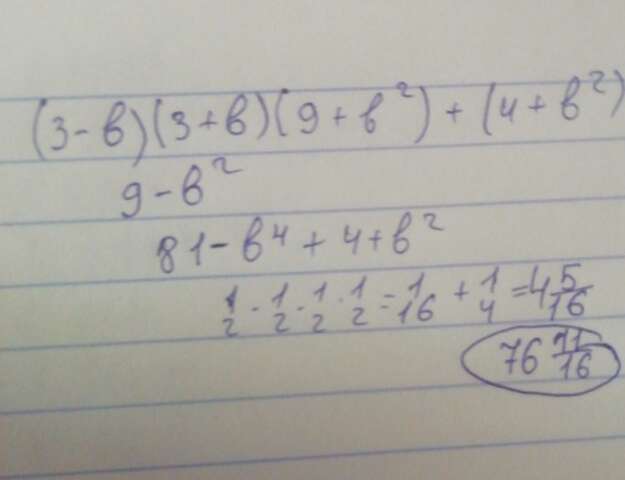 (3-в)(3+в)(9+в²)+(4+в²)
9-в²
81-в⁴+4+в²
1/2 · 1/2 · 1/2 · 1/2 = 1/16 + 1/4 = 4 5/16
76 11/16